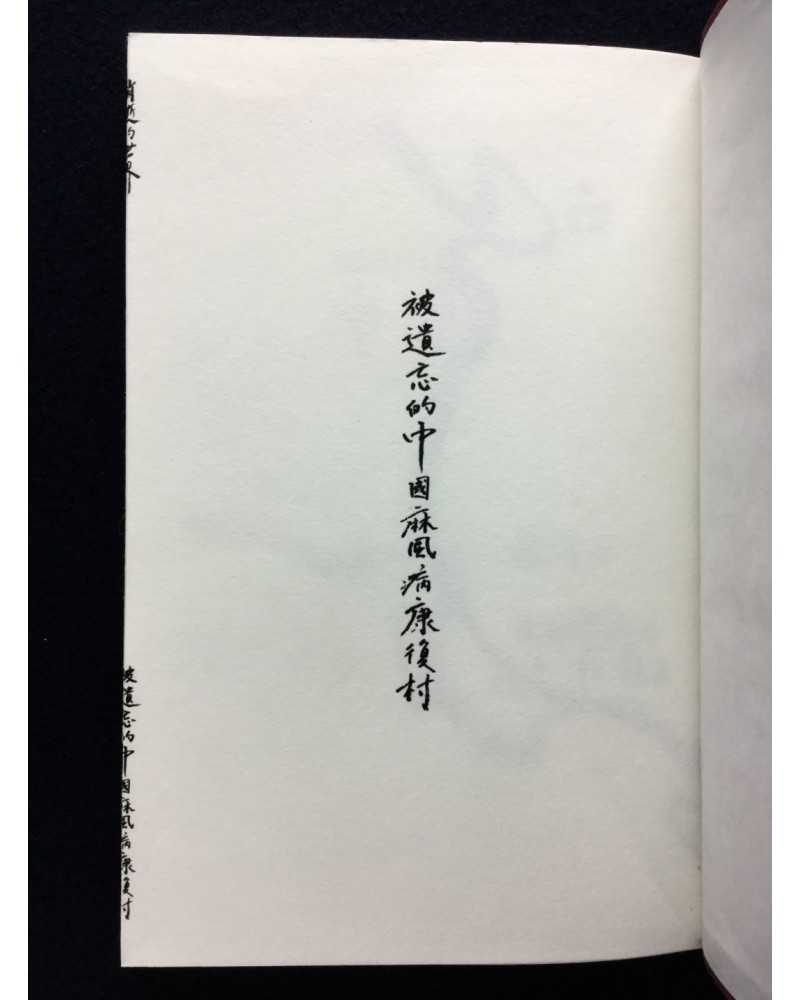 被遺忘的中國麻風病康復村
消逝的世界
被遺忘的中國麻風病康復村